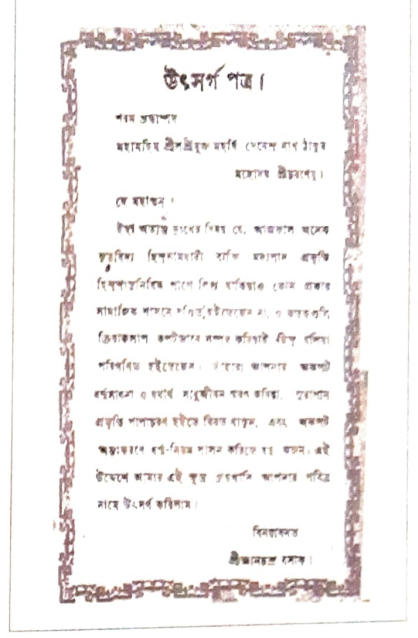 উৎসর্গ পত্র।
পরম শ্রদ্ধাস্পদ
মহামহিম শ্রীলশ্রীযুক্ত মহর্ষি দেবেন্দ্র নাথ ঠাকুর
মহোদয় শ্রীচরণেষু।
হে মহাত্মন্ !
ইহা অত্যন্ত দুঃখের বিষয় যে, আজকাল অনেক
হিন্দুনামধারী ব্যক্তি মদ্যপান প্রভৃতি
পাপে লিপ্ত থাকিয়াও কোন প্রকার
সামাজিক শাসনে না, ও কতকগুলি
ক্রিয়াকলাপ কপটভাবে সম্পন্ন করিয়াই হিন্দু বলিয়া
পরিগণিত হইতেছেন। আপনার অকপট
ধর্ম্মসাধনা ও যথার্থ সাধুজীবন স্মরণ করিয়া, সুরাপান
প্রভৃতি পাপাচরণ হইতে বিরত থাকুন, এবং অকপট
অন্তঃকরণে ধর্ম্ম-নিয়ম পালন করিতে যত্ন করুন। এই
উদ্দেশে আমার এই ক্ষুদ্র গ্রন্থখানি আপনার পবিত্র
নামে উৎসর্গ করিলাম।
বিনয়াবনত
শ্রীজ্ঞানচন্দ্র বসাক।